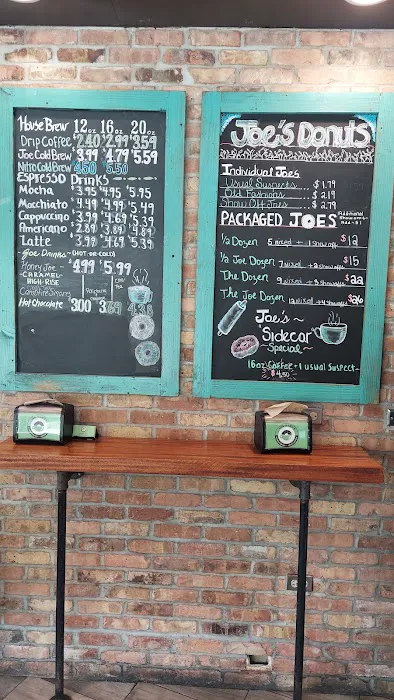 House Brew 12oz 16oz 20oz
Drip Coffee $2.40 $2.99 $3.59
Joe Cold Brew $3.99 $4.79 $5.59
Nitro Cold Brew 4.50 5.50
Espresso Drinks
Mocha $3.95 $4.95 $5.95
Macchiato $4.49 $4.99 $5.49
Cappuccino $3.99 $4.69 $5.39
Americano $2.89 $3.89 $4.89
Latte $3.99 $4.69 $5.39
Joe Drinks (HOT OR COLD)
Honey Joe $4.99 $5.99
CARAMEL
HIGH-RISE
Campfire Smores
Hot Chocolate $300 $3
Joe's Donuts
Individual Joes
Usual Suspects... $1.79
Old Fashions... $2.19
Show Off Joes $2.79
PACKAGED JOES
1/2 Dozen 5 mixed + 1 show off $12
1/2 Joe Dozen 7 mixed + 2 show offs $15
The Dozen 9 mixed + 3 show offs $22
The Joe Dozen 12 mixed + 4 show offs $26
Joe's ~
~ Sidecar
Special ~
16oz Coffee + 1 Usual Suspect
$4.50